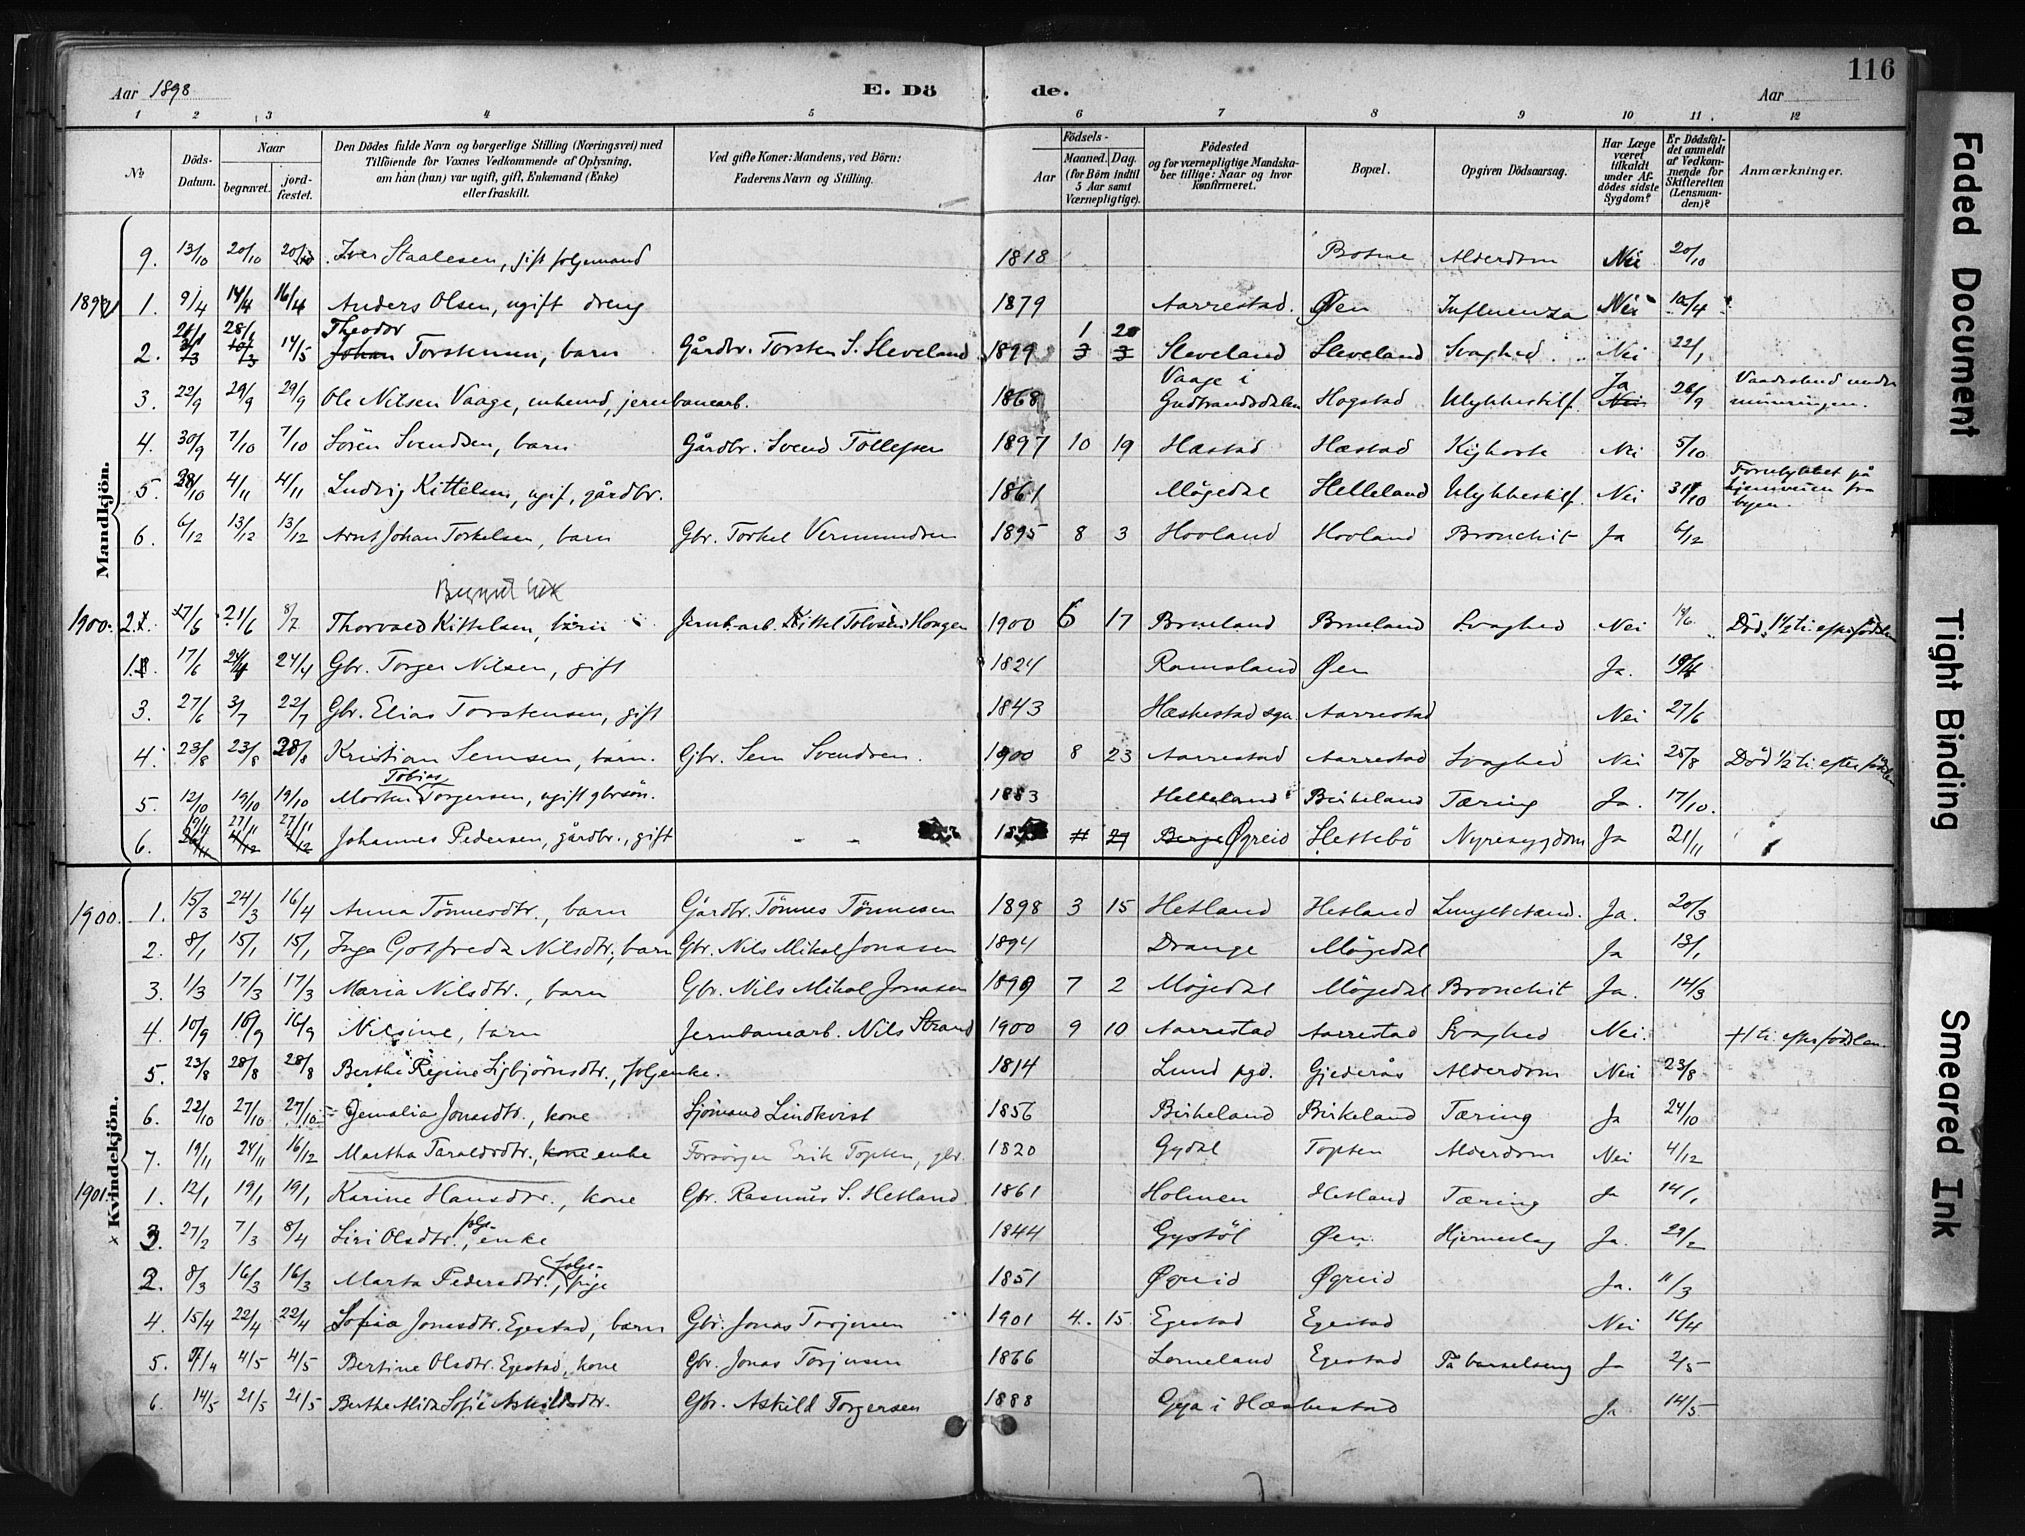 Aar 1898
E. Dö
de.
Aar
116
1 2 3 4 5 6 7 8 9 10 11 12
№
Döds-Datum.
Naar
begravet.
jordfæstet.
Den Dödes fulde Navn og borgerlige Stilling (Næringsvei) med
Tilföiende for Voxnes Vedkommende af Oplysning,
om han (hun) var ugift, gift, Enkemand (Enke)
eller fraskilt.
Ved gifte Koner: Mandens, ved Börn:
Faderens Navn og Stilling.
Födsels-
Aar
Maaned. Dag.
(for Börn indtil 5 Aar samt Værnepligtige).
Födested
og for værnepligtige Mandskaber tillige: Naar og hvor konfirmeret.
Bopæl.
Opgiven Dödsaarsag.
Har Læge været tilkaldt under Afdödes sidste Sygdom?
Er Dödsfaldet anmeldt af Vedkommende for Skifteretten (Lensmanden)?
Anmærkninger.
Mandkjön.
9. 13/10 20/10 20/10 Iver Staalesen, gift folgemand 1818 Alderdom Nei 20/10
1. 9/4 14/4 16/4 Anders Olsen, ugift dreng 1879 Aarrestad. Øen Influenza Nei 10/4
2. 14/5 Theodor Torstensen, barn Gårdbr. Torsten S. Sleveland 1899 1 20 Sleveland Sleveland Svaghed Nei 22/1
3. 22/9 29/9 29/9 Ole Nilsen Vaage, jernbanearb. 1868 Vaage i Gudbrandsdalen Hogstad Ulykkestilf. Ja 26/9
4. 30/9 7/10 7/10 Sören Svendsen, barn Gårdbr. Svend Tollefsen 1897 10 19 Hæstad Hæstad Kighoste Nei 5/10
5. 28/10 4/11 4/11 Ludvig Kittelsen, ugif, gårdbr. 1861 Mögedal Helleland Ulykkestilf. Nei 31/10 Forulykket på hjemveien fra byen.
6. 6/12 13/12 13/12 Arnt Johan Torkelsen, barn Gbr. Torkel Vermundsen 1895 8 3 Hovland Hovland Bronchit Ja 6/12
1900. 2. 17/6 21/6 8/7 Thorvald Kittelsen, barn Jernb.arb. Kittel Tolvsen Haugen 1900 6 17 Brueland Brueland Svaghed Nei Död 1½ ti. efter födslen
1. 17/6 24/4 Gbr. Torger Nilsen, gift 1824 Ramsland Øen Ja.
3. 27/6 3/7 22/7 Gbr. Elias Torstensen, gift 1843 Hæskestad sgn. Aarrestad Nei 27/6
4. 23/8 23/8 28/8 Kristian Semsen, barn. Gbr. Sem Svendsen. 1900 8 23 Aarrestad Aarrestad Svaghed Nei 25/8 Död ½ ti. efter födslen
5. 12/10 19/10 19/10 Morten Tobias Torgersen, ugift gbrsön. 1883 Helleland Birkeland Tæring Ja. 17/10.
6. 27/11 27/11 Johannes Pedersen, gårdbr., gift Øgreid Hettebö Nyresygdom Ja 21/11
Kvindekjön.
1900. 1. 15/3 24/3 16/4 Anna Tönnesdtr., barn Gårdbr. Tönnes Tönnesen 1898 3 15 Hetland Hetland Ja. 20/3
2. 8/1 15/1 15/1 Inga Gotfreda Nilsdtr., barn Gbr. Nils Mikal Jonasen 1894 Drange Mögedal Ja 13/1
3. 1/3 17/3 17/3 Maria Nilsdtr., barn Gbr. Nils Mikal Jonasen 1899 7 2 Mögedal Mögedal Bronchit Ja. 14/3
4. 10/9 16/9 16/9 Nilsine, barn Jernbanearb. Nils Strand 1900 9 10 Aarrestad Aarrestad Svaghed Nei. † 1 ti. efter födslen
5. 23/8 28/8 28/8 Berthe Regine Sigbjörnsdtr., folgenke. 1814 Lund pgd. Gjederås Alderdom Nei 23/8
6. 22/10 27/10 27/10 Jemalia Jonasdtr., kone Sjömand Lindkvist 1856 Birkeland Birkeland Tæring Ja 24/10
7. 19/11 24/11 16/12 Martha Taraldsdtr., kone enke Forsörger Erik Topten, gbr. 1820 Gydal Topten Alderdom Nei 4/12
1901. 1. 12/1 19/1 19/1 Karine Hansdtr., kone Gbr. Rasmus S. Hetland. 1861 Holmen Hetland Tæring Ja 14/1
3. 27/2 7/3 8/4 Siri Olsdtr., folg-enke 1844 Gystöl Øen Hjerneslag Ja. 29/2
2. 8/3 16/3 16/3 Marta Pedersdtr., folge-pige 1851 Øgreid Øgreid Ja. 11/3
4. 15/4 22/4 22/4 Sofia Jonasdtr. Egestad, barn Gbr. Jonas Torjusen 1901 4. 15 Egestad Egestad Nei 16/4
5. 4/5 4/5 Bertine Olsdtr. Egestad, kone Gbr. Jonas Torjusen 1866 Lomeland Egestad På barselseng Ja 2/5
6. 14/5 21/5 21/5 Berthe Alida Sofie Askildsdtr. Gbr. Askild Torgersen 1888 Gya i Hæskestad Ja 14/5
Faded Document
Tight Binding
Smeared Ink